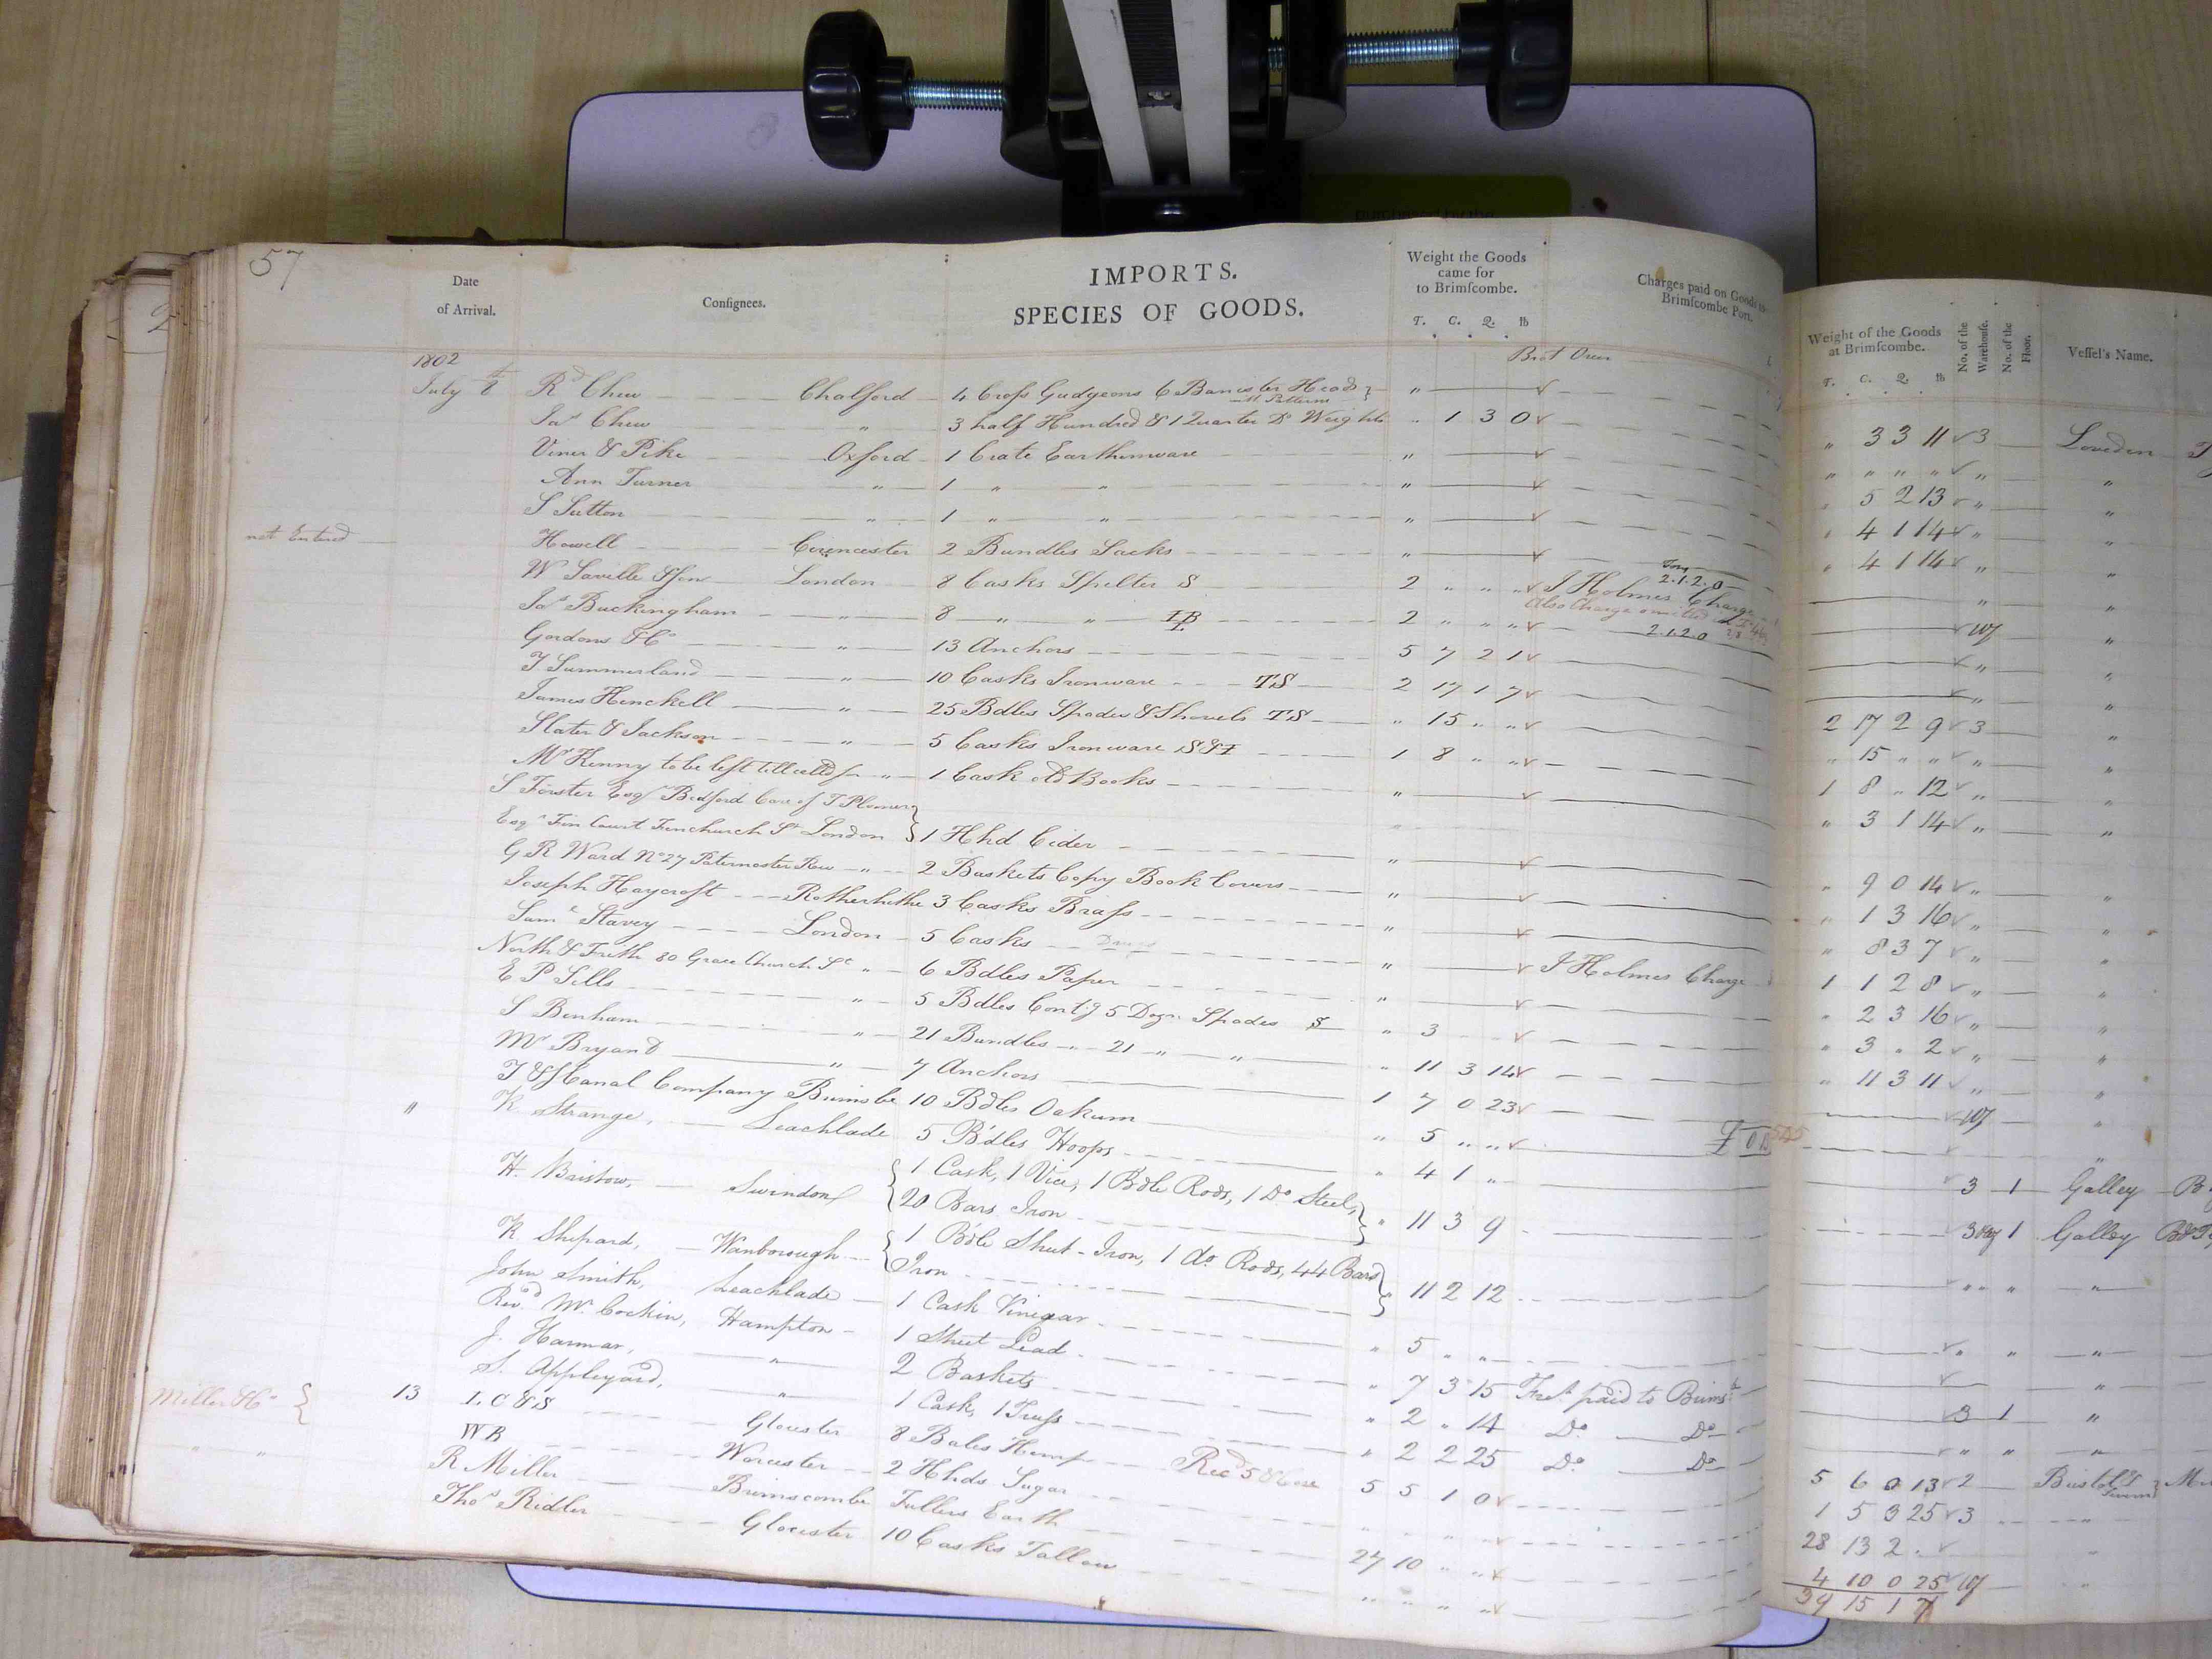 57
Date of Arrival.
Consignees.
IMPORTS.
SPECIES OF GOODS.
Weight the Goods came for to Brimscombe.
T. C. Q. lb
Charges paid on Goods to Brimscombe Port.
Weight of the Goods at Brimscombe.
T. C. Q. lb
No. of the Warehouse.
No. of the Floor.
Vessel's Name.
1802
Brot Over
July 8th Rd Chew Chalford 4 Cross Gudgeons 6 Banister Heads } " 3 3 11 3 Loveden
Patterns
Jas Chew " 3 half Hundred & 1 Quarter Do Weights " 1 3 0 " " " " " "
Viner & Pike Oxford 1 Crate Earthenware " " 5 2 13 " "
Ann Turner " 1 " " " " 4 1 14 " "
S Sutton " 1 " " " " 4 1 14 " "
not Entered Howell Cirencester 2 Bundles Sacks " " "
W Saville & Son London 8 Casks Spelter S 2 " " " J Holmes Charge 2.1.2.0 "
Also Charge omitted
Jas Buckingham " 8 " " IB 2 " " " 2.1.2.0 "
Gordons & Co " 13 Anchors 5 7 2 1 "
T Summerland " 10 Casks Ironware TS 2 17 1 7 2 17 2 9 3 "
James Henckell " 25 Bdles Spades & Shovels TS " 15 " " " 15 " " " "
Slater & Jackson " 5 Casks Ironware S&I 1 8 " " 1 8 " 12 " "
Mr Kenny to be left till called for " 1 Cask old Books " " 3 1 14 " "
S Forster Esqr Bedford Care of T Plomer }
Esqr Fin Court Fenchurch St London } 1 Hhd Cider " " 9 0 14 " "
G R Ward No 27 Paternoster Row " 2 Baskets Copy Book Covers " " 1 3 16 " "
Joseph Haycroft Rotherhithe 3 Casks Brass " " 8 3 7 " "
Saml Stavey London 5 Casks " J Holmes Charge 1 1 2 8 " "
North & Frith 80 Grace Church St " 6 Bdles Paper " " 2 3 16 " "
E P Sells " 5 Bdles Contg 5 Dozn Spades S " 3 " 3 " 2 " "
S Benham " 21 Bundles " 21 " " " 11 3 14 " 11 3 11 " "
Mr Bryand " 7 Anchors 1 7 0 23 "
T & S Canal Company Brimsbe 10 Bdles Oakum " 5 " " "
" K Strange, Leachlade 5 B'dles Hoops " 4 1 " 3 1 Galley
H. Bristow, Swindon { 1 Cask, 1 Vice, 1 Bdle Rods, 1 Do Steel,
{ 20 Bars Iron } " 11 3 9 1 Galley
K Shepard, Wanborough { 1 B'dle Sheet-Iron, 1 do Rods, 44 Bars
{ Iron } " 11 2 12 " " "
John Smith, Leachlade 1 Cask Vinegar " 5 " " " " "
Revd Mr Cockin, Hampton 1 Sheet Lead " 7 3 15 Fret paid to Brims "
J. Harmar, " 2 Baskets " 2 " 14 Do Do 3 1 "
S. Appleyard, " 1 Cask, 1 Truss " 2 2 25 Do Do " " "
Miller & Co { 13 I.C & S Glocester 8 Bales Hemp Recd 5 5 1 0 5 6 0 13 2 Bristol
" " WB Worcester 2 Hhds Sugar " " " " 1 5 3 25 3 "
R Miller Brimscombe Fullers Earth 27 10 " " 28 13 2 "
Thos Ridler Glocester 10 Casks Tallow " " " " 4 10 0 25
39 15 1 7